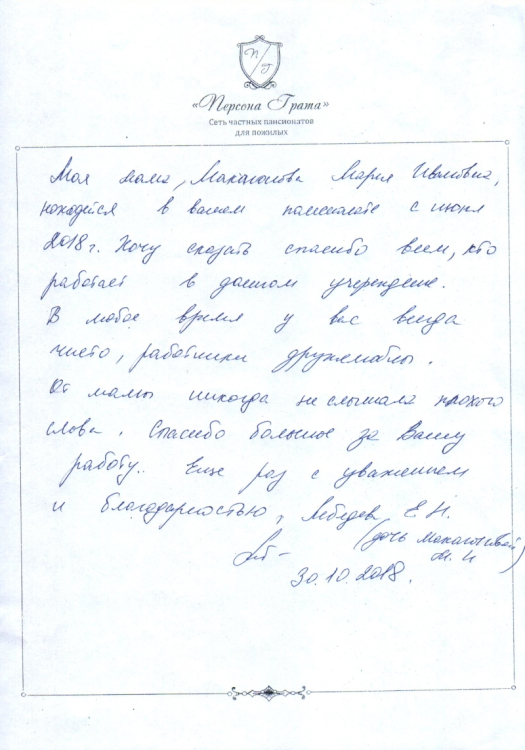 П/Г
«Персона Грата»
Сеть частных пансионатов
для пожилых
Моя мама, Макагонова Мария Ивановна,
находится в вашем пансионате с июня
2018 г. Хочу сказать спасибо всем, кто
работает в данном учреждение.
В любое время у вас всегда
чисто, работники дружелюбны.
От мамы никогда не слышала плохого
слова. Спасибо большое за Вашу
работу. Еще раз с уважением
и благодарностью, Лебедева Е.Н.
(дочь Макагоновой
М. И
30.10.2018.